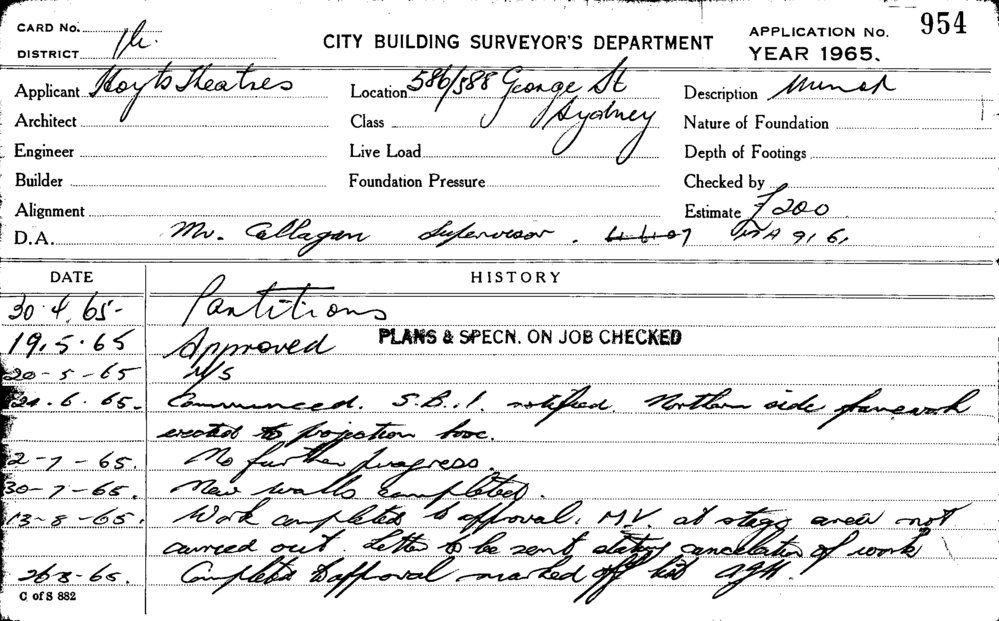 CARD No.
DISTRICT
CITY BUILDING SURVEYOR'S DEPARTMENT
APPLICATION No. 954
YEAR 1965.
Applicant Hoyts Theatres
Location 586/588 George St
Sydney
Description
Architect
Class
Nature of Foundation
Engineer
Live Load
Depth of Footings
Builder
Foundation Pressure
Checked by
Alignment
Estimate £200
D.A. Mr. Callagan Supervisor. 61-61-07
DATE HISTORY
30.4.65- Partitions
19.5.65 Approved PLANS & SPECN. ON JOB CHECKED
20-5-65 N/S
.6.65. Communced. S.B.I. notified. Northern side framework
erected to projection boxe.
2-7-65. No further progress.
30-7-65. New walls completed.
13-8-65. Work completed to approval. M.V. at stage area not
carried out. Letter to be sent stating cancelation of work
26-8-65. Completed to approval marked off list
C of S 882